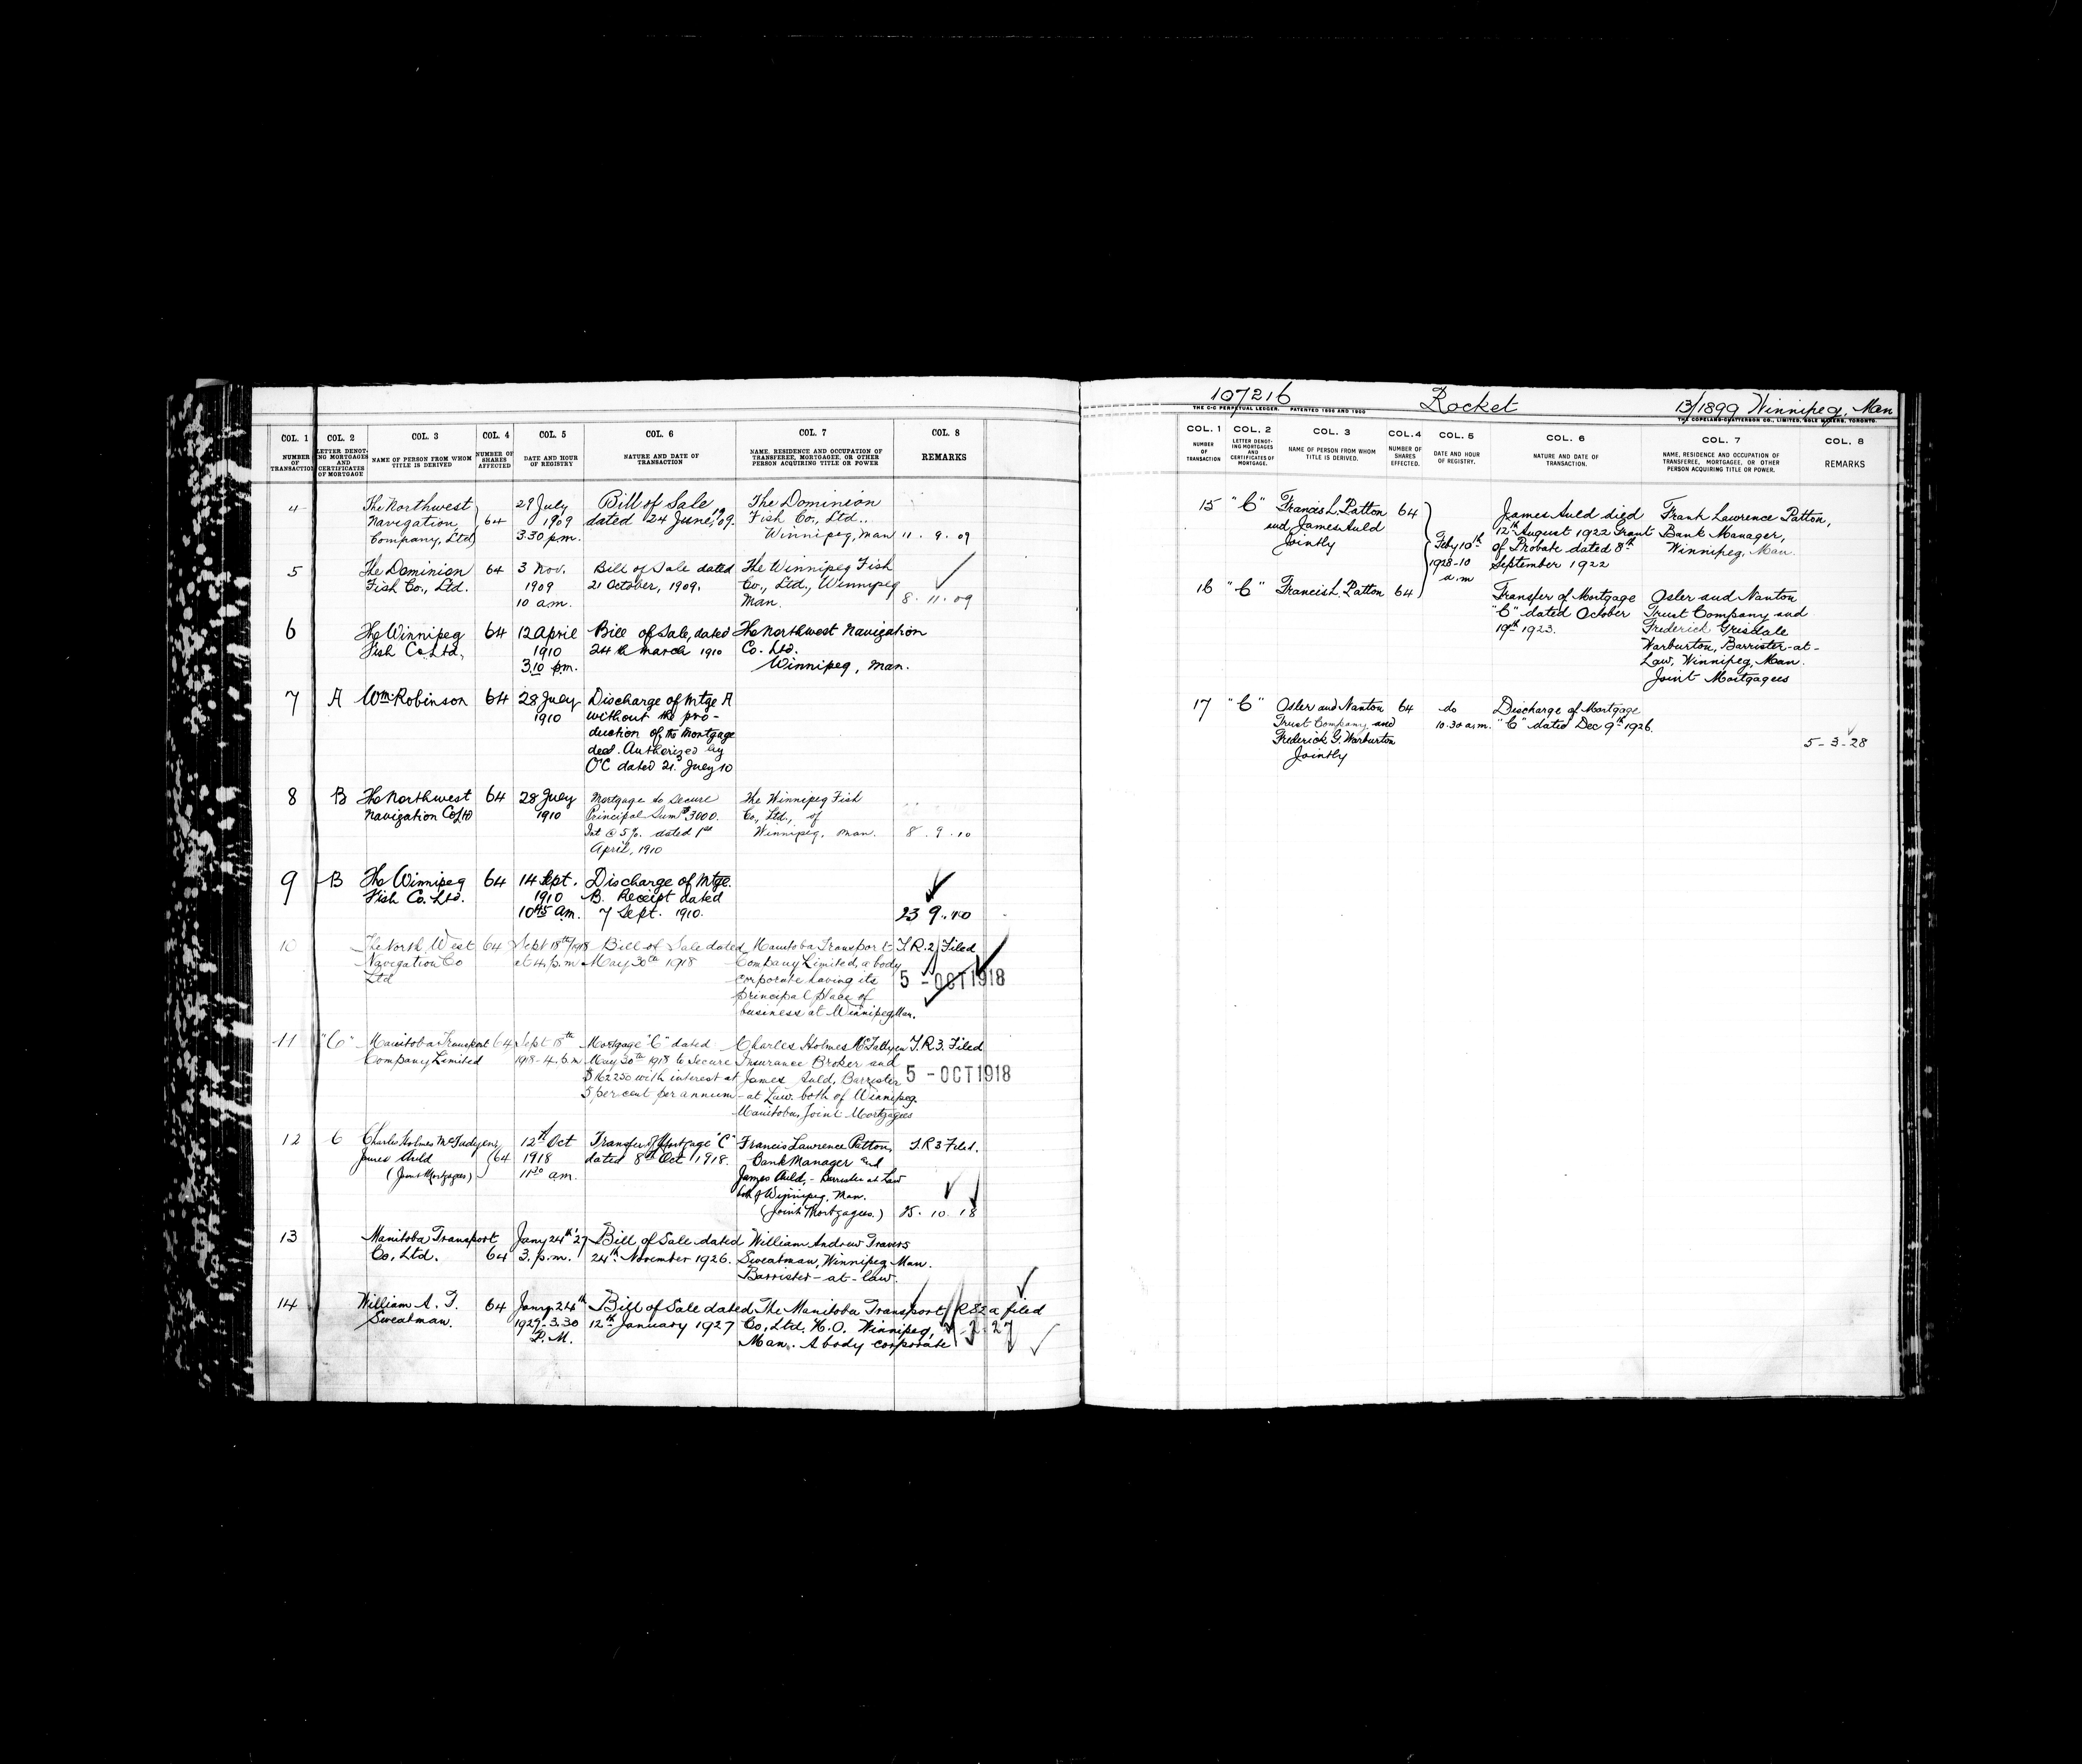 COL. 1 COL. 2 COL. 3 COL. 4 COL. 5 COL. 6 COL. 7 COL. 8
NUMBER OF TRANSACTION
LETTER DENOTING MORTGAGES AND CERTIFICATES OF MORTGAGE
NAME OF PERSON FROM WHOM TITLE IS DERIVED
NUMBER OF SHARES AFFECTED
DATE AND HOUR OF REGISTRY
NATURE AND DATE OF TRANSACTION
NAME, RESIDENCE AND OCCUPATION OF TRANSFEREE, MORTGAGEE, OR OTHER PERSON ACQUIRING TITLE OR POWER
REMARKS
4 The Northwest 29 July Bill of Sale The Dominion
Navigation 64 1909 dated 24 June, '09. Fish Co., Ltd.,
Company, Ltd 3.30 p.m. Winnipeg, Man 11 . 9 . 09
5 The Dominion 64 3 Nov. Bill of Sale dated The Winnipeg Fish
Fish Co., Ltd. 1909 21 October, 1909. Co., Ltd., Winnipeg
10 am. Man. 8 . 11 . 09
6 The Winnipeg 64 12 April Bill of Sale, dated The Northwest Navigation
Fish Co Ltd, 1910 24th March 1910 Co. Ltd.
3.10 pm. Winnipeg, Man.
7 A Wm Robinson 64 28 July Discharge of Mtge A
1910 without the pro-
duction of the Mortgage
deed. Authorized by
OC dated 21 July 10
8 B The Northwest 64 28 July Mortgage to secure The Winnipeg Fish
Navigation Co Ltd 1910 Principal Sum $3000. Co., Ltd., of
Int @ 5%. dated 1st Winnipeg, Man. 8 . 9 . 10
April, 1910
9 B The Winnipeg 64 14 Sept. Discharge of Mtge.
Fish Co. Ltd. 1910 B. Receipt dated
10.45 a.m. 7 Sept. 1910. 23 9. 10
10 The North West 64 Sept 18th/1918 Bill of Sale dated Manitoba Transport T.R.2 Filed
Navigation Co at 4. p.m May 30th 1918 Company Limited, a body
Ltd corporate having its 5 - OCT 1918
principal place of
business at Winnipeg Man.
11 "C" Manitoba Transport 64 Sept 18th Mortgage "C" dated Charles Holmes T.R.3. Filed
Company Limited 1918 - 4. p.m. May 30th 1918 to Secure Insurance Broker and
$162250 with interest at James Auld, Barrister 5 - OCT 1918
5 per cent per annum - at Law. both of Winnipeg.
Manitoba, Joint Mortgagees
12 C Charles Holmes 12th Oct Transfer of Mortgage "C" Francis Lawrence Patton, T.R 3 Filed.
James Auld 64 1918 dated 8th Oct 1918. Bank Manager and
(Joint Mortgagees) 11.30 am. James Auld, - Barrister at Law
both of Winnipeg, Man.
(Joint Mortgagees.) 25. 10. 18
13 Manitoba Transport Jany 24th '27 Bill of Sale dated William Andrew Travers
Co, Ltd. 64 3. p.m. 24th November 1926. Sweatman, Winnipeg, Man.
Barrister - at - law.
14 William A. T. 64 Jany. 24th Bill of Sale dated The Manitoba Transport filed
Sweatman. 1927 - 3.30 12th January 1927 Co, Ltd. H.O. Winnipeg, 2. 27
P.M. Man. A body corporate
107216 Rocket 13/1899 Winnipeg, Man
THE C-C PERPETUAL LEDGER. PATENTED
THE COPELAND-CHATTERSON CO., LIMITED, SOLE MAKERS, TORONTO.
COL. 1 COL. 2 COL. 3 COL. 4 COL. 5 COL. 6 COL. 7 COL. 8
NUMBER OF TRANSACTION
LETTER DENOTING MORTGAGES AND CERTIFICATES OF MORTGAGE.
NAME OF PERSON FROM WHOM TITLE IS DERIVED.
NUMBER OF SHARES EFFECTED.
DATE AND HOUR OF REGISTRY.
NATURE AND DATE OF TRANSACTION.
NAME, RESIDENCE AND OCCUPATION OF TRANSFEREE, MORTGAGEE, OR OTHER PERSON ACQUIRING TITLE OR POWER.
REMARKS
15 "C" Francis L. Patton 64 James Auld died Frank Lawrence Patton,
and James Auld 12th August 1922 Grant Bank Manager,
Jointly Feby 10th of Probate dated 8th Winnipeg, Man.
1928 - 10 September 1922
a.m
16 "C" Francis L. Patton 64 Transfer of Mortgage Osler and Nanton
"C" dated October Trust Company and
19th 1923. Frederick Grisdale
Warburton, Barrister-at-
Law, Winnipeg, Man.
Joint Mortgagees
17 "C" Osler and Nanton 64 do Discharge of Mortgage
Trust Company and 10.30 a.m. "C" dated Dec 9th 1926.
Frederick G. Warburton 5 - 3 - 28
Jointly